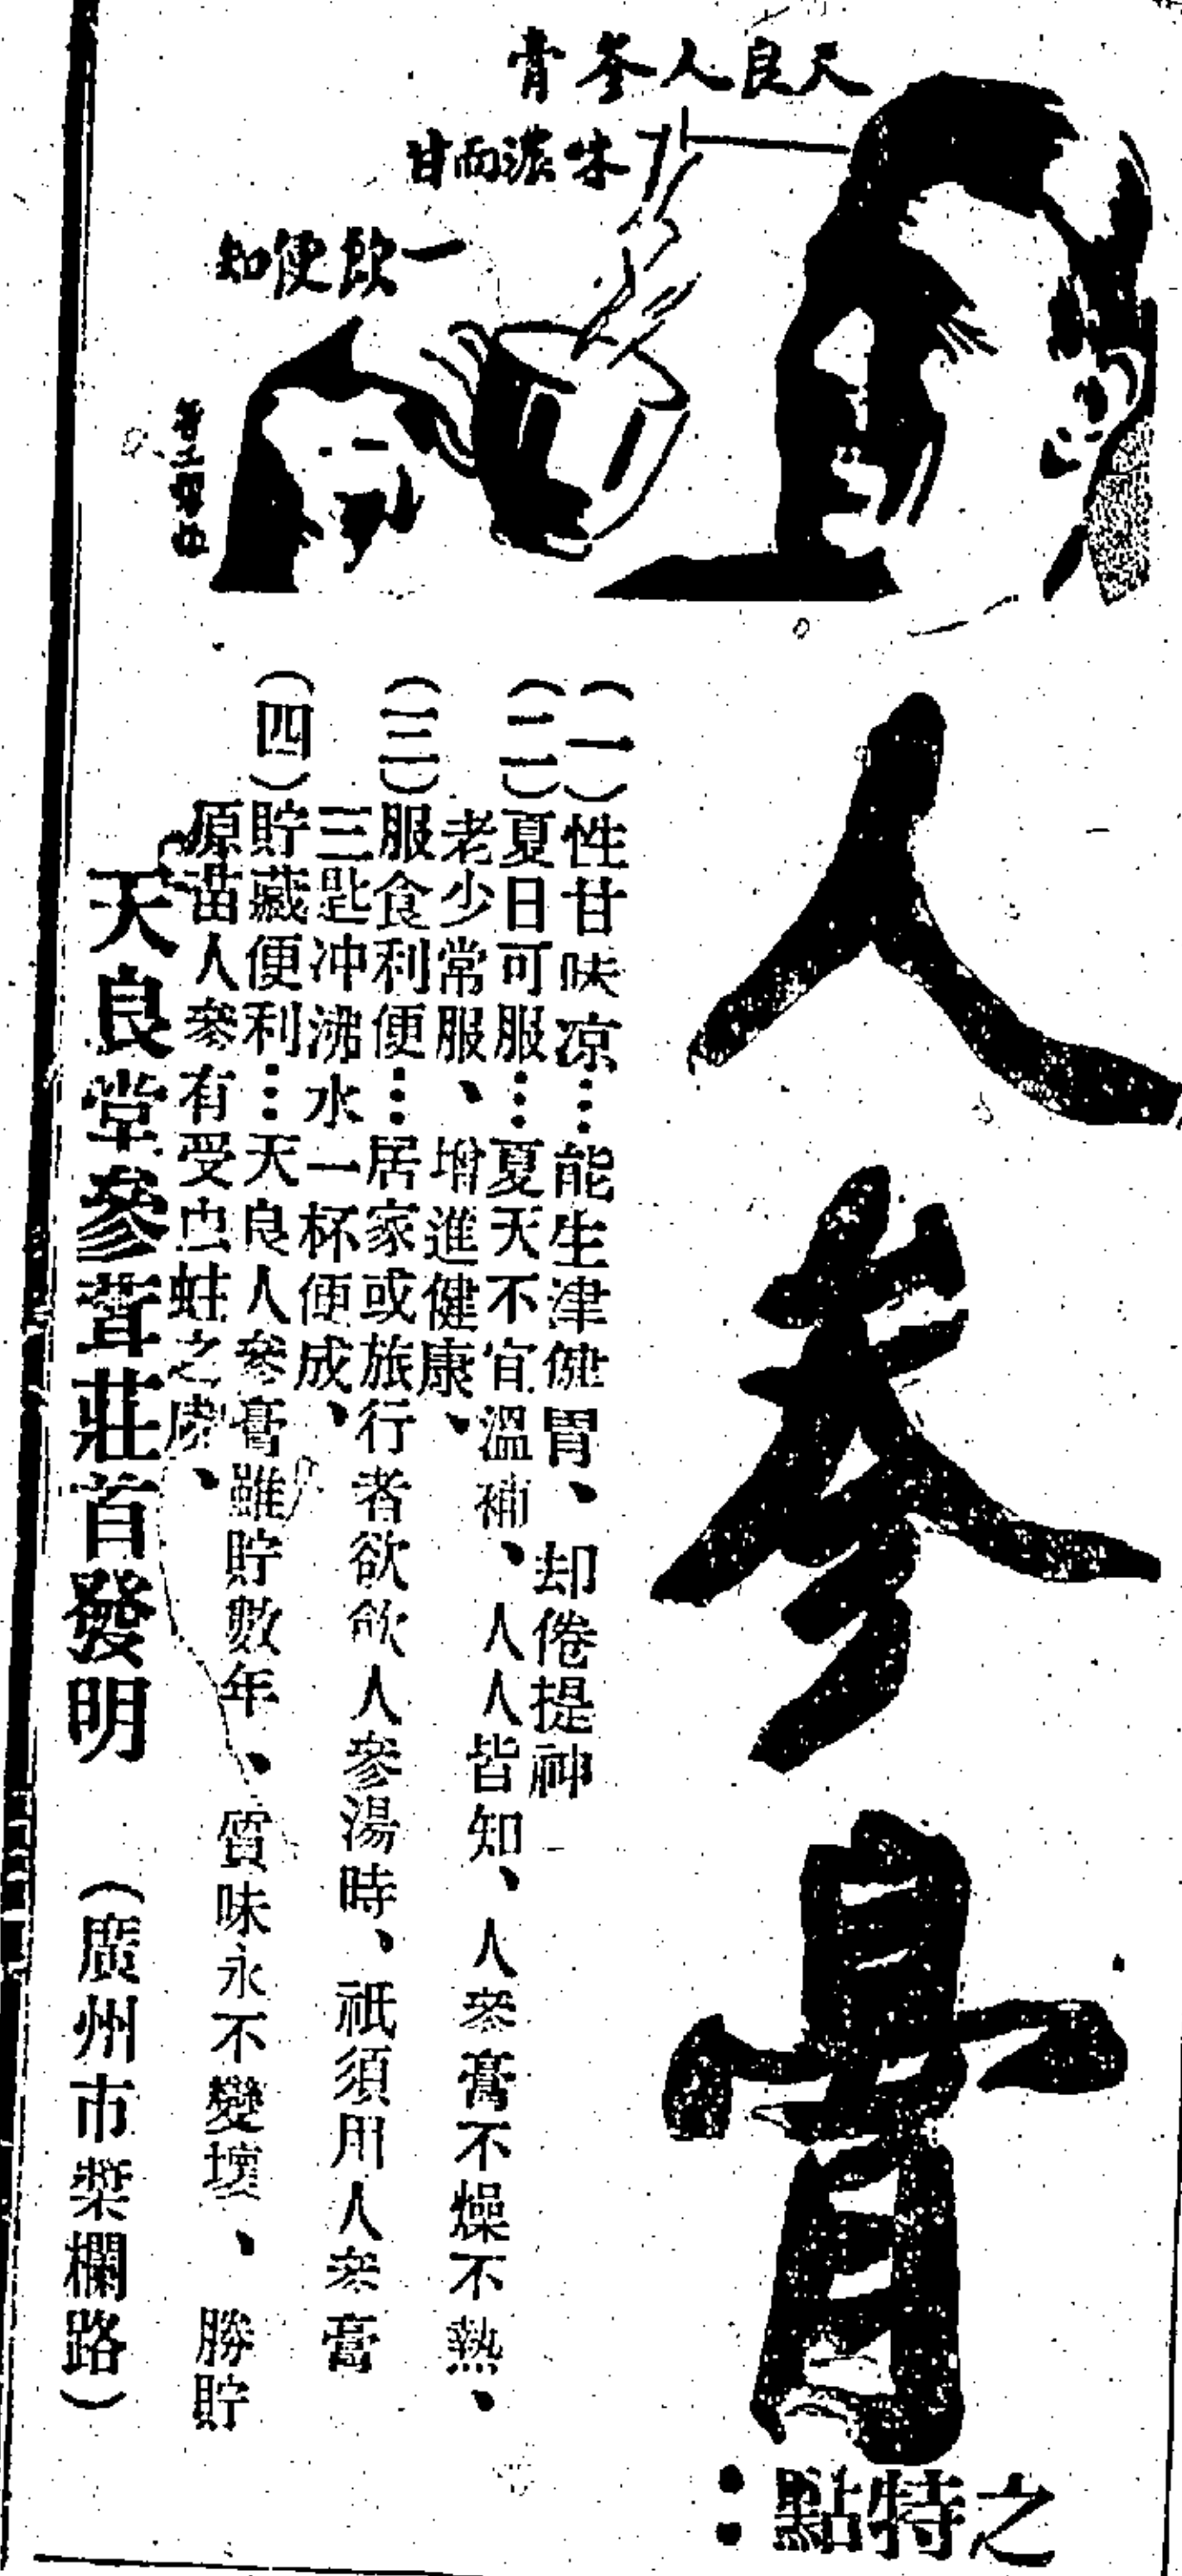 天良人参膏
味濃而甘
一飲便知
人參膏
之特點：
（一）性甘味凉…能生津健胃、却倦提神
（二）夏日可服…夏天不宜溫補、人人皆知、人參膏不燥不熱、
老少常服、增進健康、
（三）服食利便…居家或旅行者欲飲人參湯時、祇須用人參膏
三匙冲沸水一杯便成、
（四）貯藏便利…天良人參膏雖貯數年、質味永不變壞、勝貯
原苗人參有受虫蛀之虞、
天良堂參茸莊首發明（廣州市槳欄路）